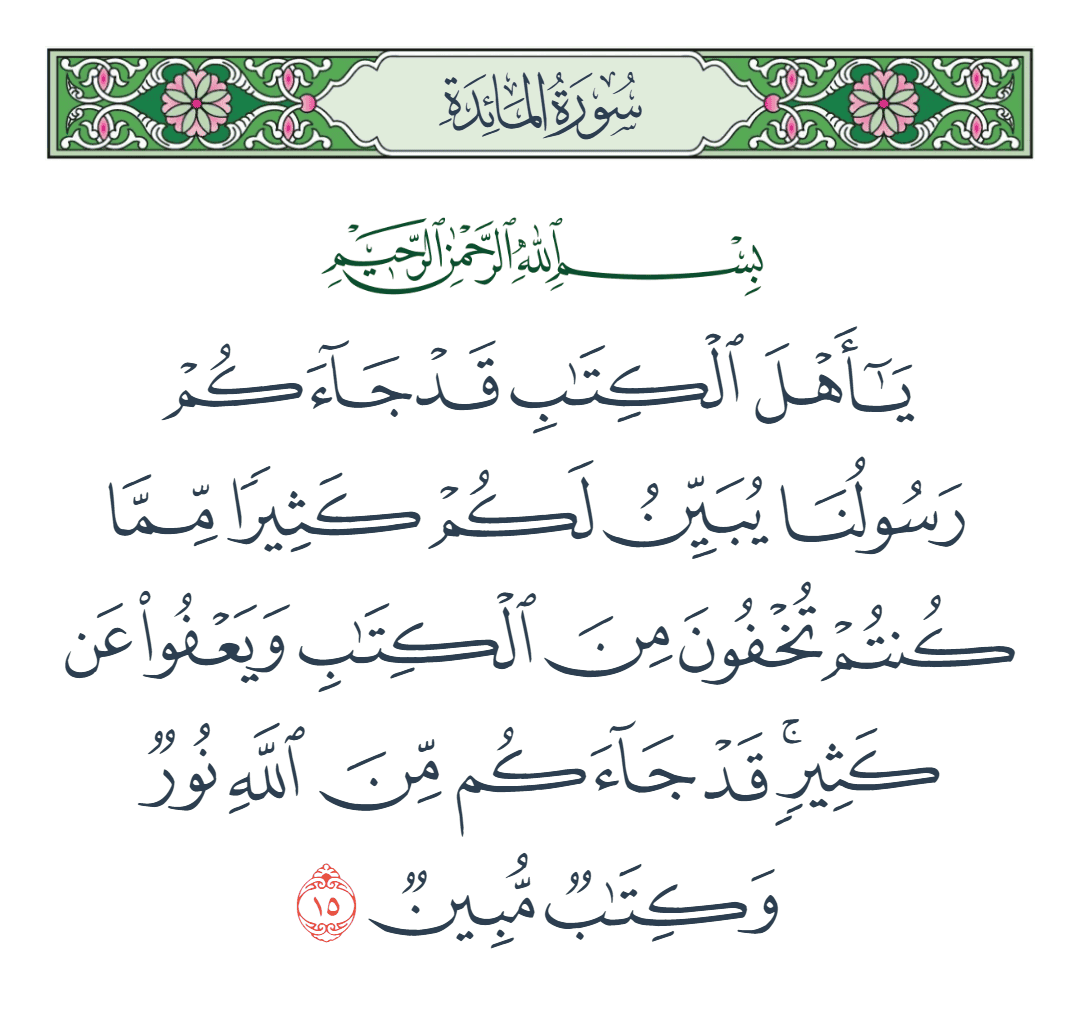 سُورَةُ المَائِدَةِ
بِسْمِ ٱللَّهِ ٱلرَّحْمَٰنِ ٱلرَّحِيمِ
يَـٰٓأَهْلَ ٱلْكِتَـٰبِ قَدْ جَآءَكُمْ
رَسُولُنَا يُبَيِّنُ لَكُمْ كَثِيرًا مِّمَّا
كُنتُمْ تُخْفُونَ مِنَ ٱلْكِتَـٰبِ وَيَعْفُوا۟ عَن
كَثِيرٍ ۚ قَدْ جَآءَكُم مِّنَ ٱللَّهِ نُورٌ
وَكِتَـٰبٌ مُّبِينٌ ١٥